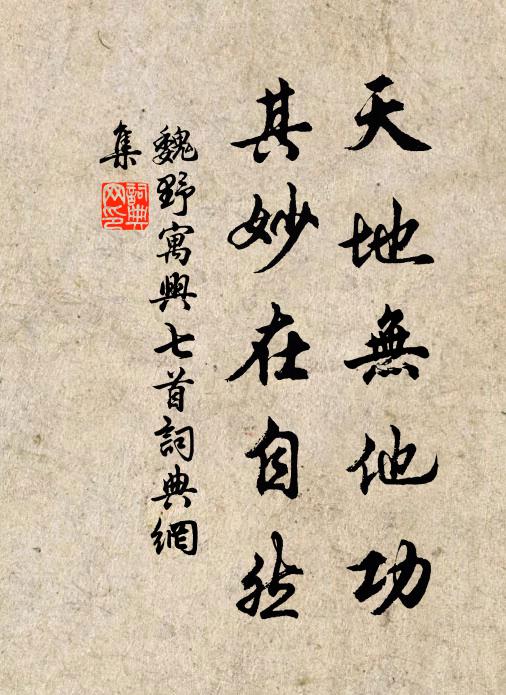 天地無他功
其妙在自然
魏野寓興七首詞典網
集
詞典網印